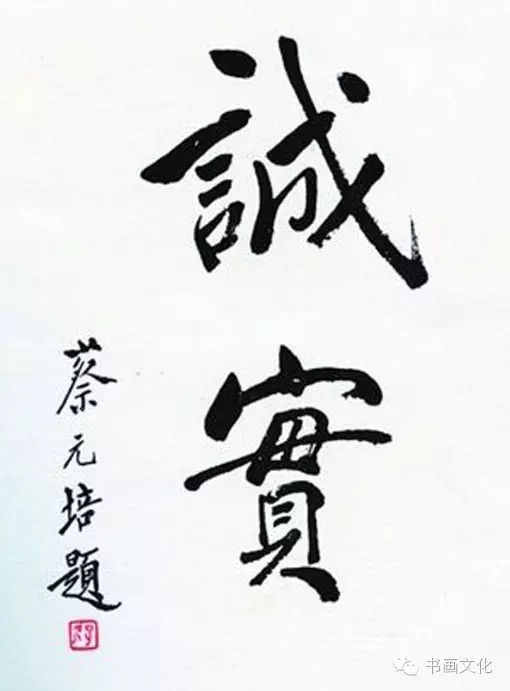 誠實
蔡元培題
书画文化